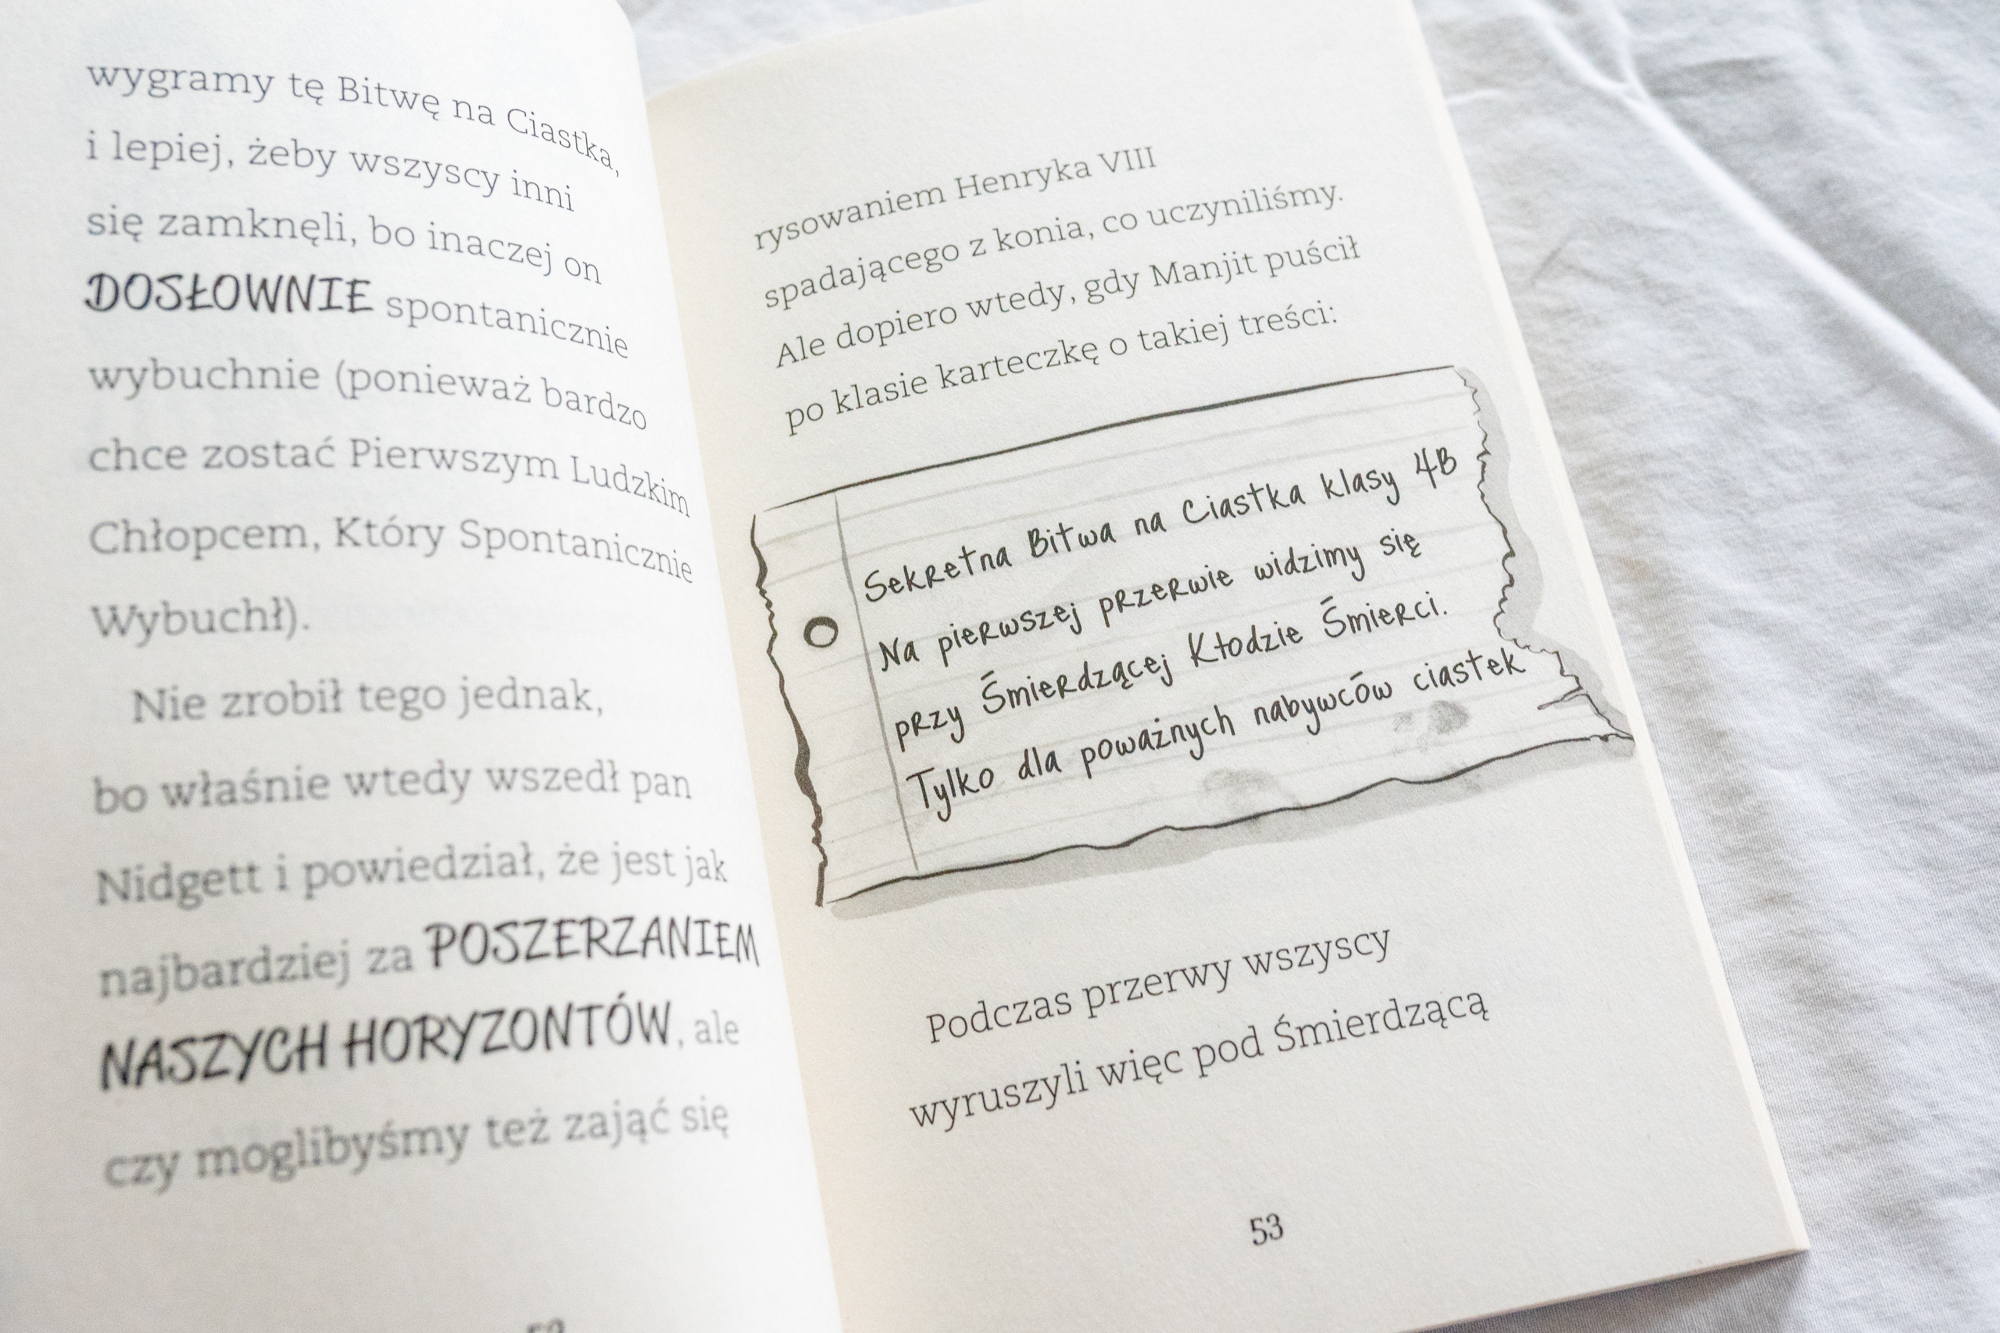 wygramy tę Bitwę na Ciastka,
i lepiej, żeby wszyscy inni
się zamknęli, bo inaczej on
DOSŁOWNIE spontanicznie
wybuchnie (ponieważ bardzo
chce zostać Pierwszym Ludzkim
Chłopcem, Który Spontanicznie
Wybuchł).
Nie zrobił tego jednak,
bo właśnie wtedy wszedł pan
Nidgett i powiedział, że jest jak
najbardziej za POSZERZANIEM
NASZYCH HORYZONTÓW, ale
czy moglibyśmy też zająć się
rysowaniem Henryka VIII
spadającego z konia, co uczyniliśmy.
Ale dopiero wtedy, gdy Manjit puścił
po klasie karteczkę o takiej treści:
Sekretna Bitwa na Ciastka klasy 4B
Na pierwszej przerwie widzimy się
przy Śmierdzącej Kłodzie Śmierci.
Tylko dla poważnych nabywców ciastek
Podczas przerwy wszyscy
wyruszyli więc pod Śmierdzącą
53